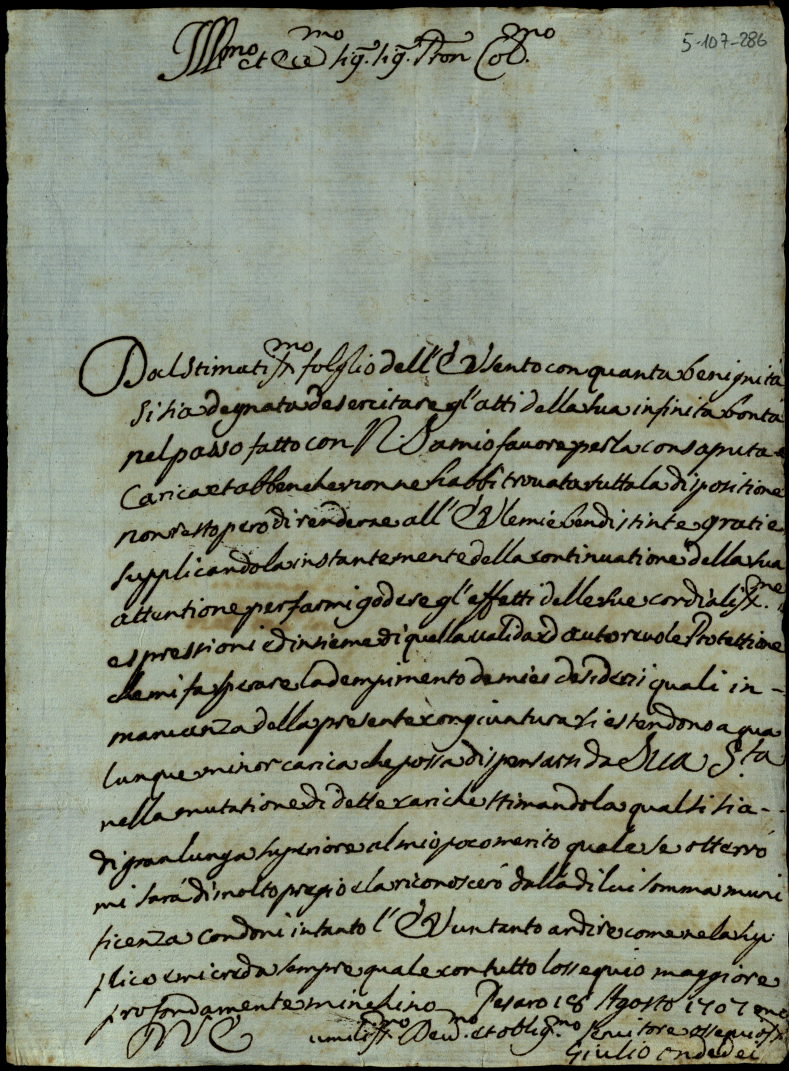 5-107-286
Ill.mo et Ecc.mo Sig. Sig. P.ron Col.mo
Dal Stimatiss.mo folglio dell'E V sento con quanta benignità
si sia degnata d'esercitare gl'atti della sua infinita bontà
nel passo fatto con N. S. a mio favore per la consaputa
Carica et abbenche non ne habbi trovata tutta la dispositione
non resto pero di renderne all'E V le mie ben distinte gratie
supplicandola instantemente della continuatione della sua
attentione per farmi godere gl'effetti delle sue cordialiss.me
espressioni ed insieme di quella valida ed autorevole Protettione
che mi fa sperare l'adempimento de miei desiderii quali in-
mancanza della presente congiuntura si estendono a qua
lunque minor carica che possa dispensarsi da Sua S.ta
nella mutatione di dette cariche stimandola qualsisia-
di gran lunga superiore al mio poco merito quale se otterrò
mi sarà di molto pregio e la riconoscerò dalla di lui somma muni
ficenza condoni intanto l'E V un tanto ardire come ne la sup
plico e mi creda sempre quale con tutto l'ossequio maggiore
profondamente m'inchino Pesaro 18 Agosto 1707
D V E
umiliss.mo Dev.mo et oblig.mo servitore ossequioss.
Giulio Ondedei